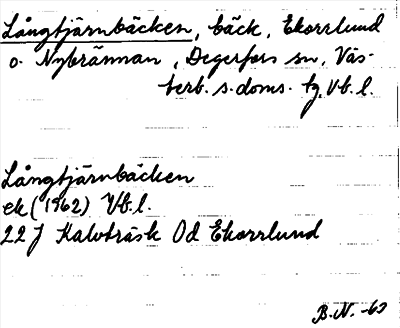 Långtjärnbäcken, bäck, Ekorrlund
o. Nybrännan, Degerfors sn, Väs-
terb. s. doms. tg. Vb. l.
Långtjärnbäcken
ek (1962) Vb. l.
22 J Kalvträsk 0d Ekorrlund
B. N. -63